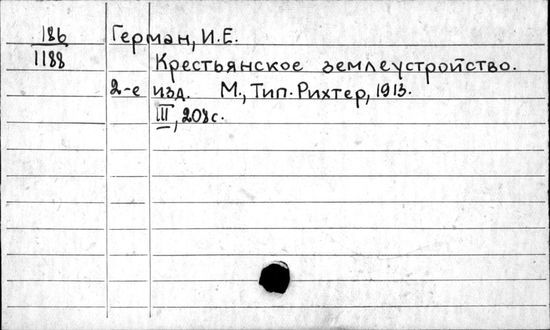 186 Герман, И.Е.
1188 Крестьянское землеустройство.
2-е изд. М., Тип. Рихтер, 1913.
III, 208 с.